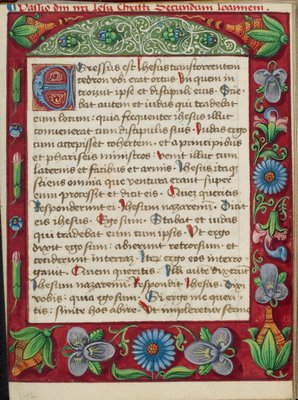 Passio dn̄i nr̄i Iesu Christi Secundum Ioannem.
Egressus est Ihesus trans torrentem
cedron ubi erat ortus In quem in
troiuit ipse et discipuli eius. Scie
bat autem et iudas qui tradebat
eum locum: quia frequenter ihesus illuc
conuenerat cum discipulis suis. Iudas ergo
cum accepisset cohortem: et a principibus
et phariseis ministros: venit illuc cum
laternis et facibus et armis. Ihesus itaq̄
sciens omnia que ventura erant super
eum processit et dicit eis. Quem queritis
Responderunt ei Ihesum nazarenū. Dicit
eis ihesus. Ego sum. Stabat et iudas
qui tradebat eum cum ipsis. Ut ergo
dixit ego sum: abierunt retrorsum: et
ceciderunt in terrā. Iterū ergo eos interro
gauit. Quem queritis. Illi autē dixerūt
Ihesum nazarenū. Respondit Ihesus. Dixi
vobis: quia ego sum. Si ergo me queri
tis: sinite hos abire. Ut impleretur sermo